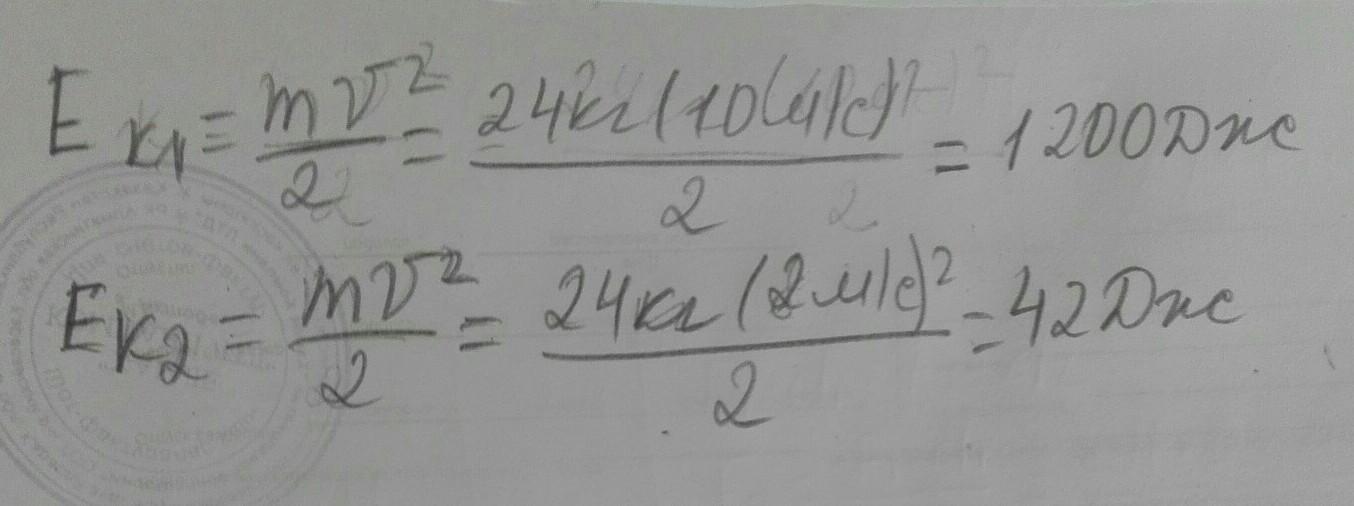 E к1 = mv²/2 = 24кг(10(м/с)²/2 = 1200Дж
Eк2 = mv²/2 = 24кг(2м/с)²/2 = 42Дж